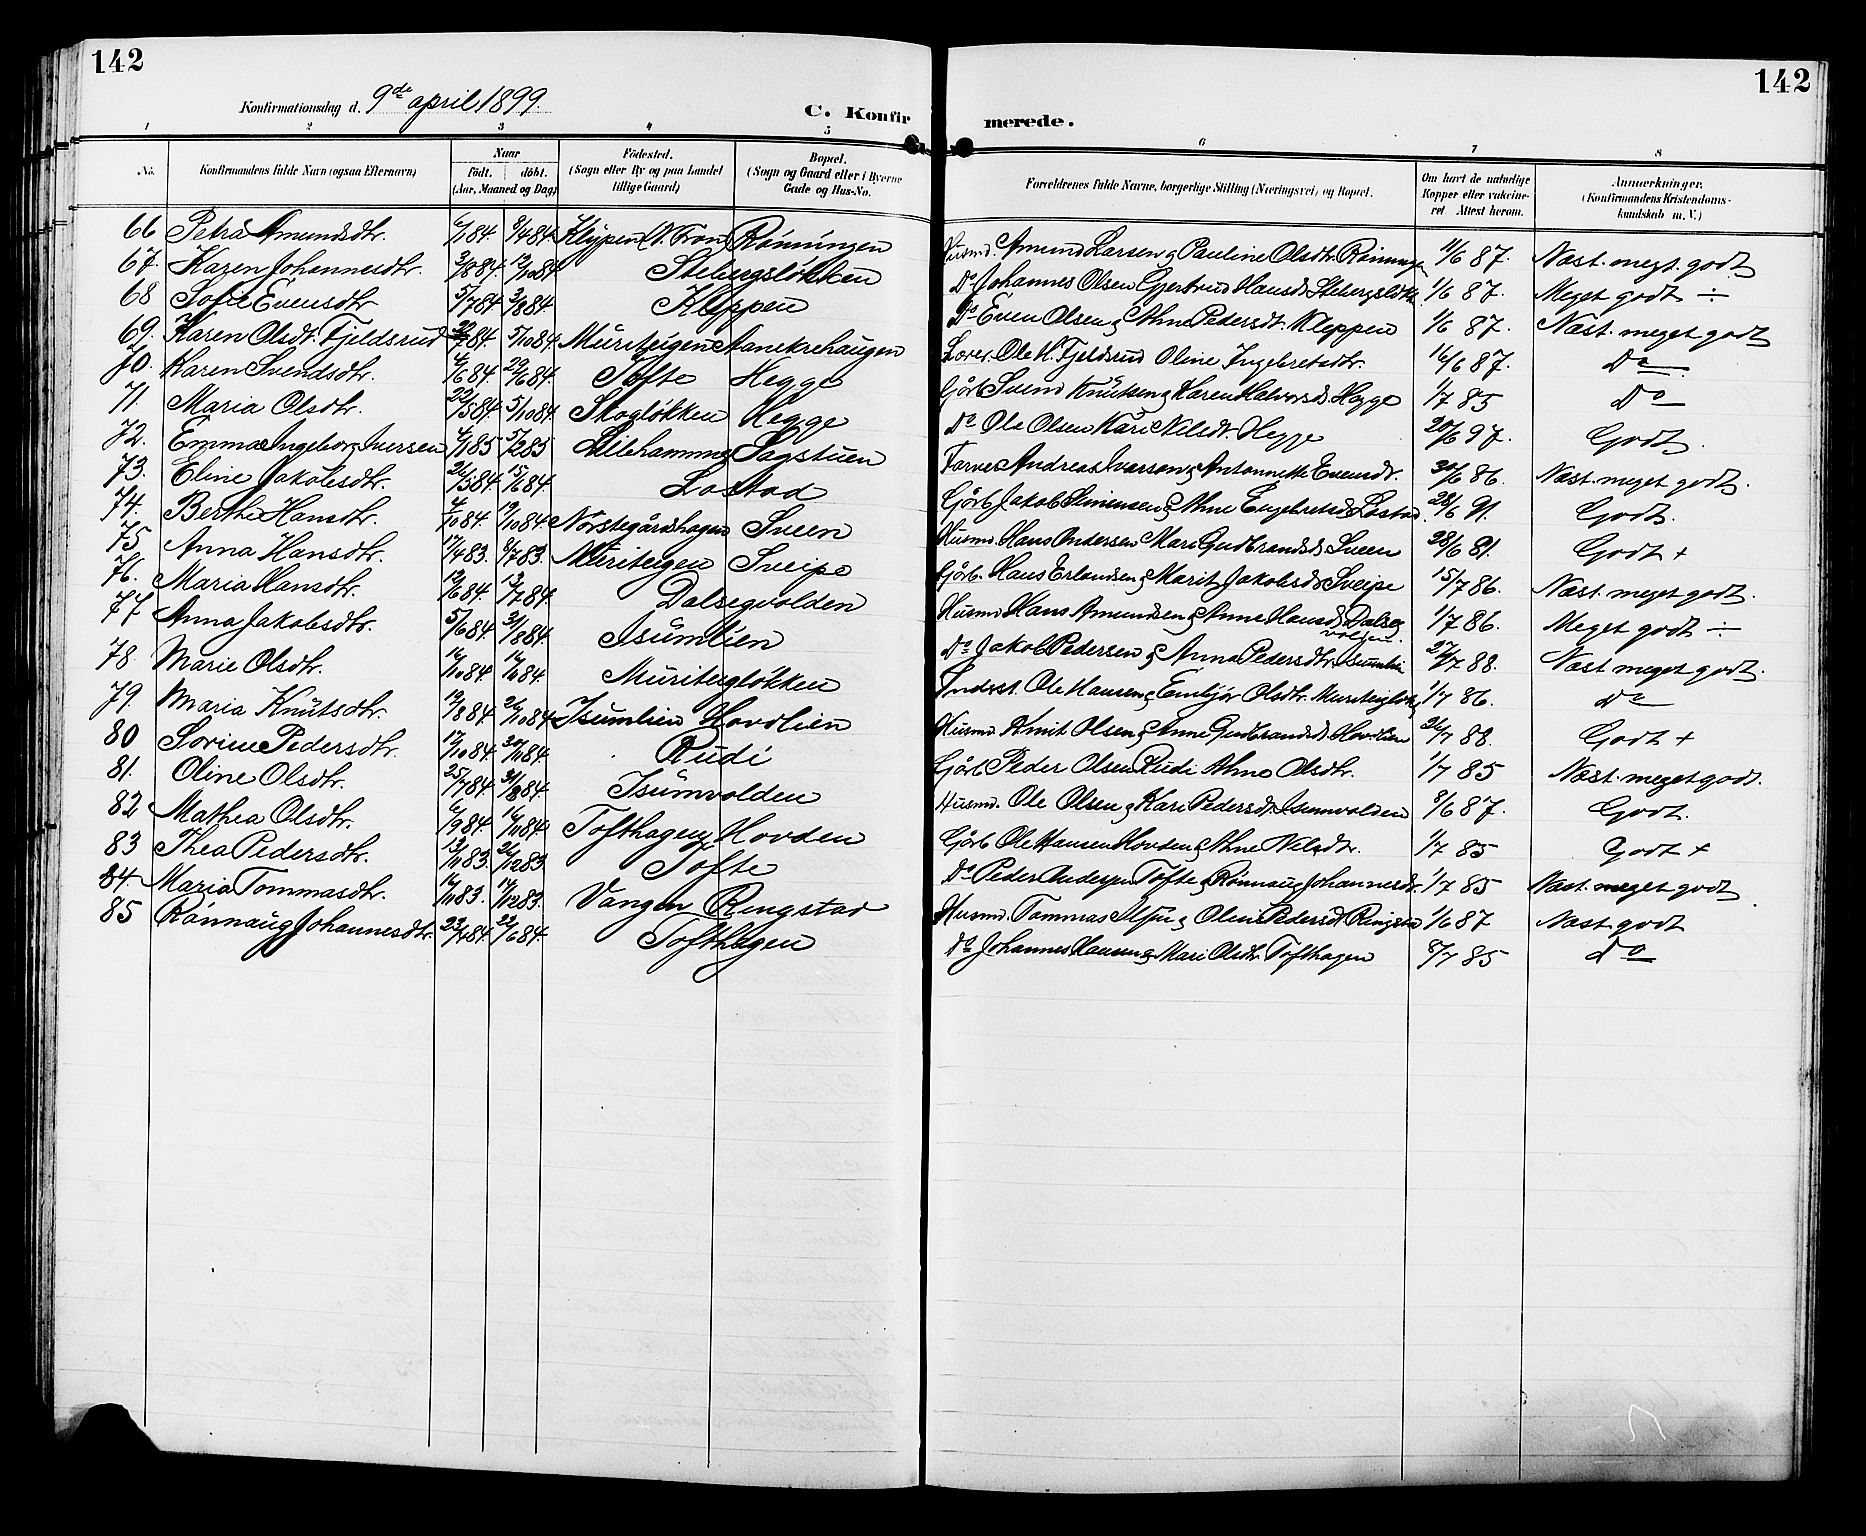 142
142
Konfirmationsdag d. 9de april 1899.
C. Konfirmerede.
1 2 3 4 5 6 7 8
No. Konfirmandens fulde Navn (ogsaa Efternavn) Naar Födt. döbt. (Aar, Maaned og Dag) Födested. (Sogn eller By og paa Landet tillige Gaard) Bopæl. (Sogn og Gaard eller i Byerne Gade og Hus-No. Forældrenes fulde Navne, borgerlige Stilling (Næringsvei) og Bopæl. Om havt de naturlige Kopper eller vaccineret Attest herom. Anmærkninger. (Konfirmandens Kristendomskundskab m. V.)
66 Petra Amundsdtr. 6/1 84. 9/4 84 Kleppen N. Fron Rønningen Husmd. Amund Larsen og Pauline Olsdtr. Rønningen 11/6 87. Næst. megt. godt
67. Karen Johannesdtr. 3/8 84 12/10 84 Stebergsløkken Do Johannes Olsen Gjertrud Hansd. Stebergsløkk. 1/6 87. Meget godt ÷
68 Sofie Evensdtr 5/7 84 3/8 84 Kleppen Do Even Olsen og Ahne Pedersdt. Kleppen 1/6 87. Næst. meget godt
69. Karen Olsdt. Fjeldsrud 84. 5/10 84 Muriteigen Aanekrehaugen Ole H. Fjeldsrud Oline Ingebretsdtr. 16/6 87. Do
70. Karen Svendsdtr. 4/6 84. 29/6 84. Tofte Hegge Gårb Svend Knutsen og Karen Halvorsd. Hegge 1/7 85 Do
71. Maria Olsdtr. 22/5 84 5/10 84. Skogløkken Hegge Do Ole Olsen Kari Nilsdt. Hegge 20/6 97. Godt.
72. Emma Ingeborg Iversen 4/1 85 5/2 85 Lillehammer Sagstuen Farver Andreas Iversen og Antonnette Evensdr. 30/6 86. Næst. meget godt.
73. Eline Jakobsdtr. 24/5 84 15/6 84. Lostad Gårb Jakob Simensen og Ahne Engebretsd. Lostad 28/6 91. Godt.
74. Berthe Hansdtr. 4/10 84. 19/10 84. Norstegårdshagen Sveen Husmd. Hans Andersen Mari Gudbrandsd. Sveen 28/6 91. Godt +
75 Anna Hansdtr. 17/4 83. 8/7 83. Muriteigen Sveipe Gårb. Hans Erlandsen og Marit Jakobsd. Sveipe 15/7 86. Næst. meget godt.
76. Maria Hansdtr. 12/6 84. 13/7 84. Dalsegvolden Husmd Hans Amundsen og Anne Hansd. Dalsegvolden. 1/7 86. Meget godt ÷
77 Anna Jakobsdtr. 5/6 84. 31/8 84. Isumlien Do Jakob Pedersen og Anna Pedersdtr. Isumlie 27/7 88. Næst meget godt.
78. Marie Olsdtr. 16/10 84 16/11 84. Muriteigløkken Inderst. Ole Hansen og Embjør Olsdtr. Muriteigløk. 1/7 86. Do
79. Maria Knutsdtr. 19/8 84. 26/10 84. Isumlien Hovdlien Husmd Knut Olsen og Anne Gudbrandsd. Hovdlien 26/7 88. Godt +
80 Sorine Pedersdtr. 17/10 84. 30/11 84. Rudi Gårb Peder Olsen Rudi Ahne Olsdtr. 1/7 85 Næst. meget godt.
81. Oline Olsdtr. 25/7 84 31/8 84. Isumvolden Husmd. Ole Olsen og Kari Pedersdt. Isumvolden 8/6 87. Godt.
82 Mathea Olsdtr. 6/9 84. 6/10 84. Tofthagen Hovden Gårb Ole Hansen Hovden og Ahne Nilsdtr. 1/7 85 Godt +
83 Thea Pedersdtr. 13/11 83. 26/12 83. Tofte Do Peder Andersen Tofte og Rønnaug Johannesdtr. 1/7 85 Næst. meget godt
84. Maria Tommasdtr. 16/11 83. 16/12 83. Vangen Ringstad Husmd. Tommas og Oline Pedersd Ringstad 1/6 87 Næst godt
85 Rønnaug Johannesdtr. 23/4 84. 22/6 84. Tofthagen Do Johannes Hansen og Mari Olsdtr. Tofthagen 8/7 85 Do